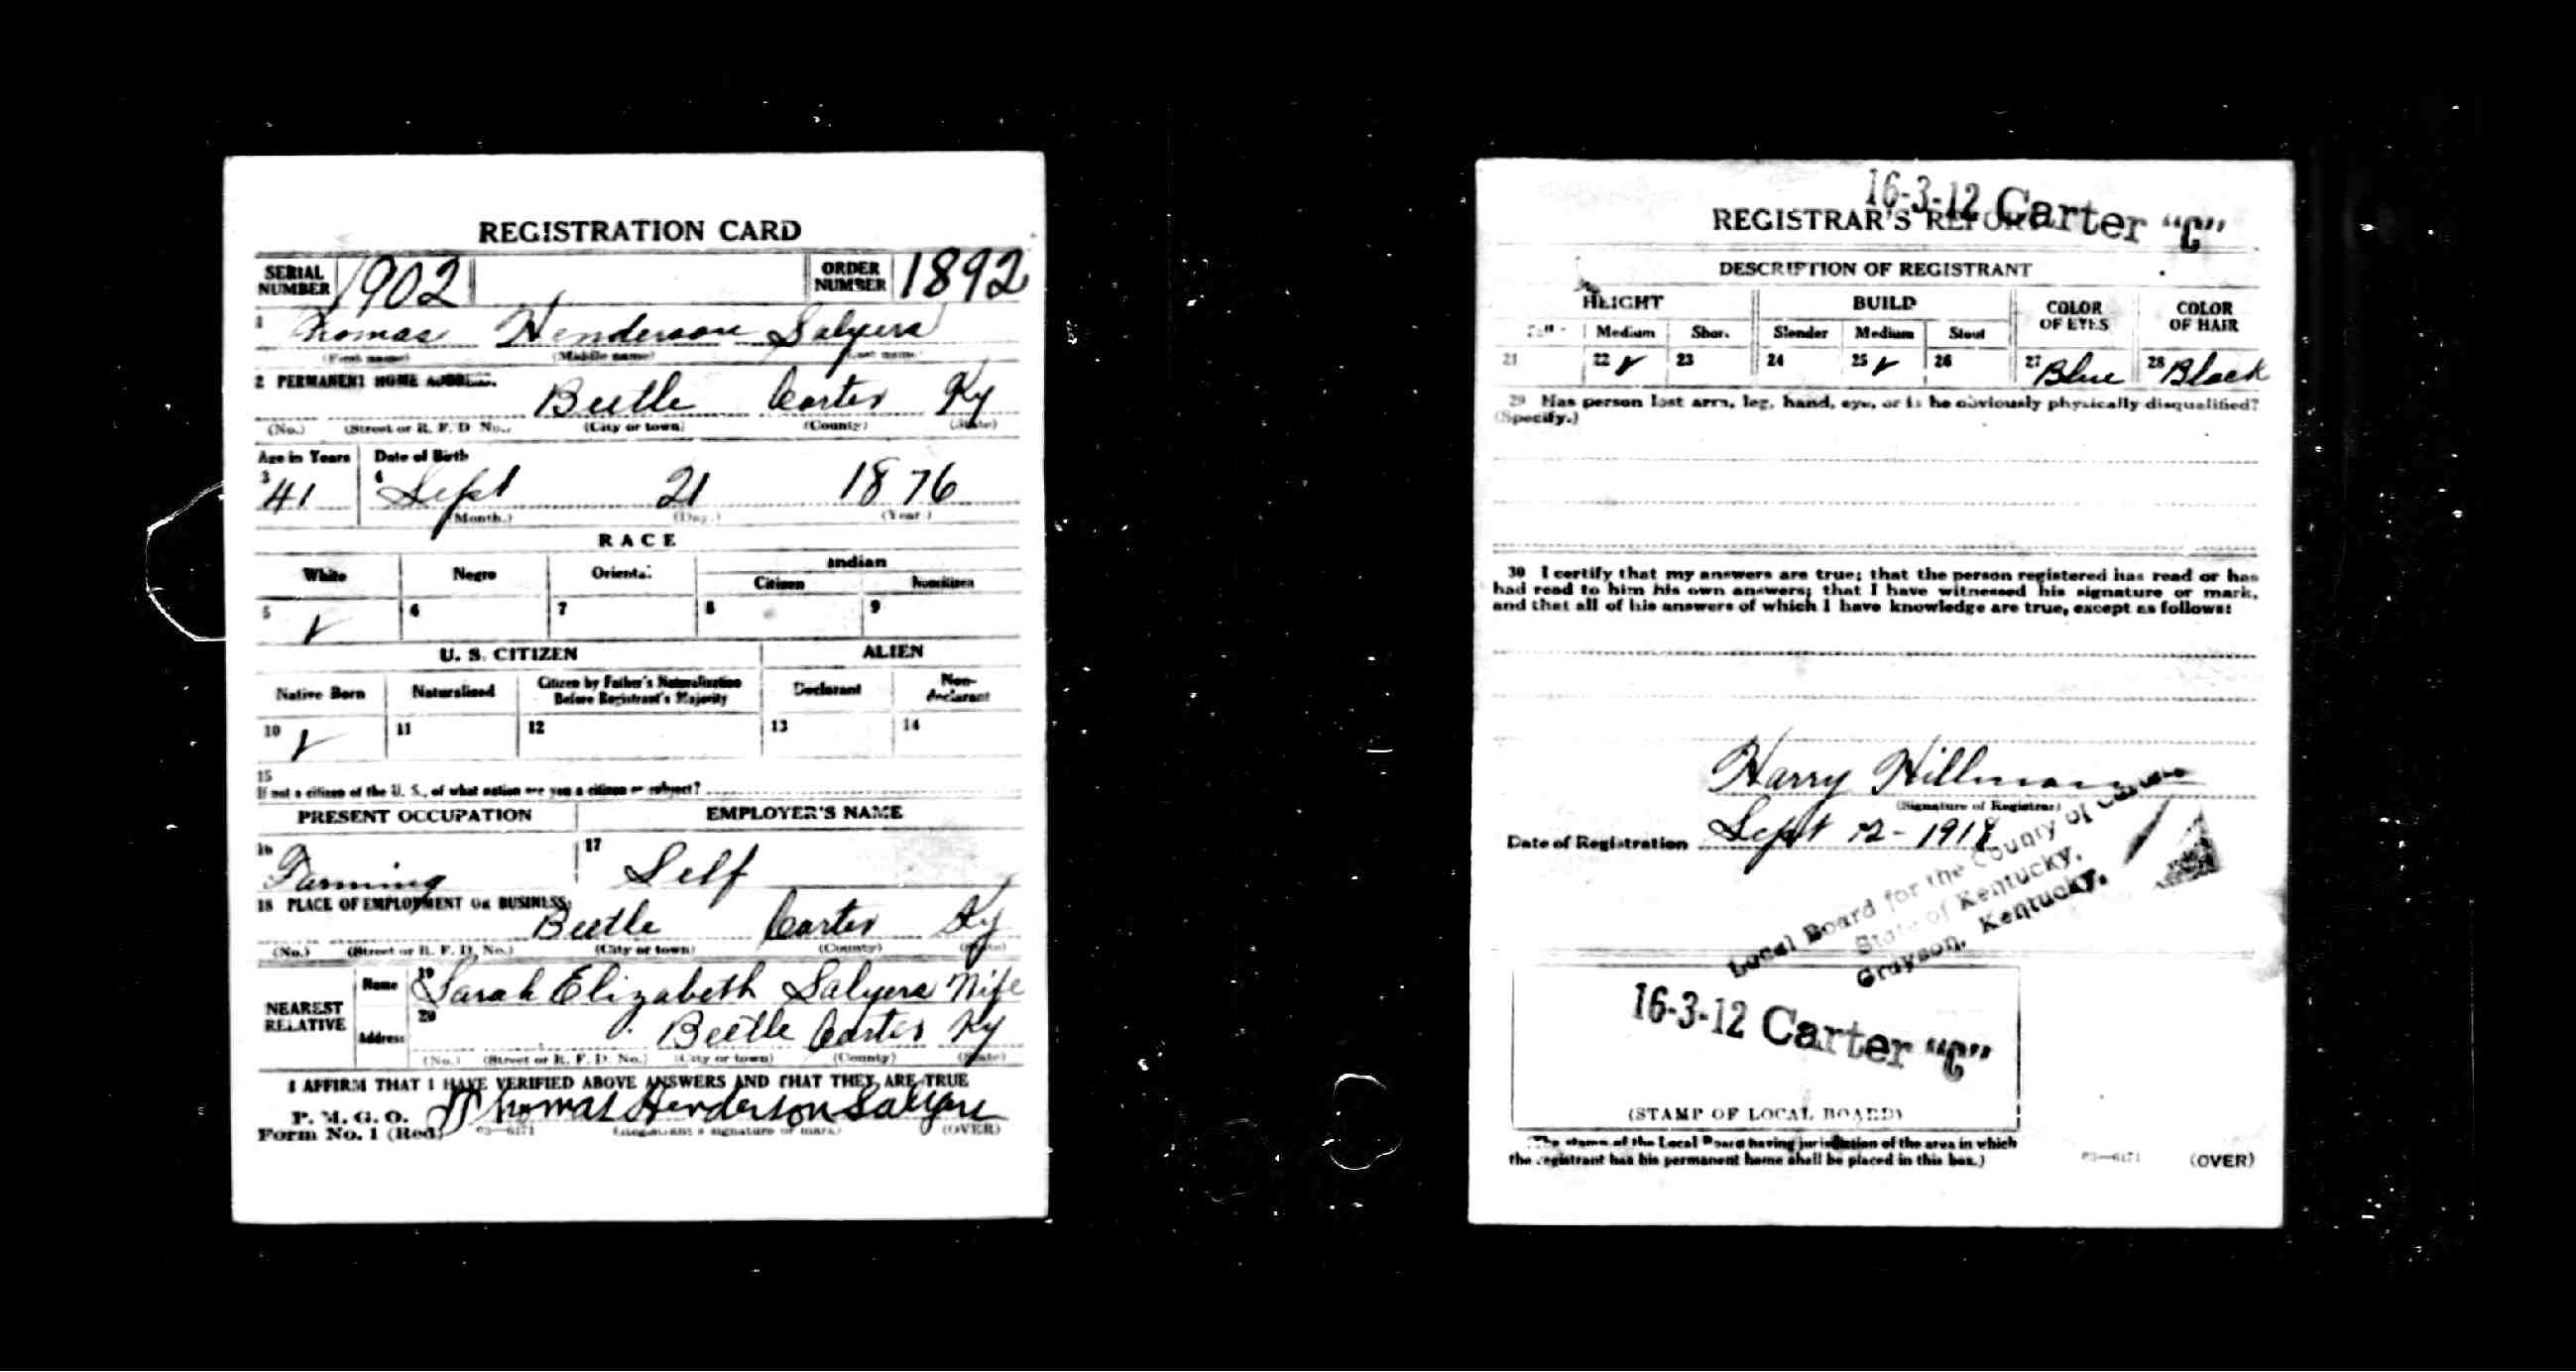 REGISTRATION CARD
SERIAL NUMBER 1902 ORDER NUMBER 1892
1 Thomas Henderson Salyers
(First name) (Middle name) (Last name)
2 PERMANENT HOME ADDRESS.
Beetle Carter Ky
(No.) (Street or R. F. D. No.) (City or town) (County) (State)
Age in Years Date of Birth
3 41 4 Sept 21 1876
(Month.) (Day.) (Year.)
RACE
White Negro Oriental Indian
Citizen Noncitizen
5 ✓ 6 7 8 9
U. S. CITIZEN ALIEN
Native Born Naturalized Citizen by Father's Naturalization Before Registrant's Majority Declarant Non-declarant
10 ✓ 11 12 13 14
15
If not a citizen of the U. S., of what nation are you a citizen or subject?
PRESENT OCCUPATION EMPLOYER'S NAME
16 Farming 17 Self
18 PLACE OF EMPLOYMENT OR BUSINESS
Beetle Carter Ky
(No.) (Street or R. F. D. No.) (City or town) (County) (State)
NEAREST RELATIVE Name 19 Sarah Elizabeth Salyers Wife
Address 20 Beetle Carter Ky
(No.) (Street or R. F. D. No.) (City or town) (County) (State)
I AFFIRM THAT I HAVE VERIFIED ABOVE ANSWERS AND THAT THEY ARE TRUE
P. M. G. O.
Form No. 1 (Red) 03—6171 Thomas Henderson Salyers
(Registrant's signature or mark) (OVER)
16-3-12 Carter "C"
REGISTRAR'S REPORT
DESCRIPTION OF REGISTRANT
HEIGHT BUILD COLOR OF EYES COLOR OF HAIR
Tall Medium Short Slender Medium Stout
21 22 ✓ 23 24 25 ✓ 26 27 Blue 28 Black
29 Has person lost arm, leg, hand, eye, or is he obviously physically disqualified?
(Specify.)
30 I certify that my answers are true; that the person registered has read or has
had read to him his own answers; that I have witnessed his signature or mark,
and that all of his answers of which I have knowledge are true, except as follows:
Harry Hillman
(Signature of Registrar)
Date of Registration Sept 12 - 1918
Local Board for the County of Carter
State of Kentucky,
Grayson, Kentucky.
16-3-12 Carter "C"
(STAMP OF LOCAL BOARD)
(The stamp of the Local Board having jurisdiction of the area in which
the registrant has his permanent home shall be placed in this box.)
03—6171 (OVER)